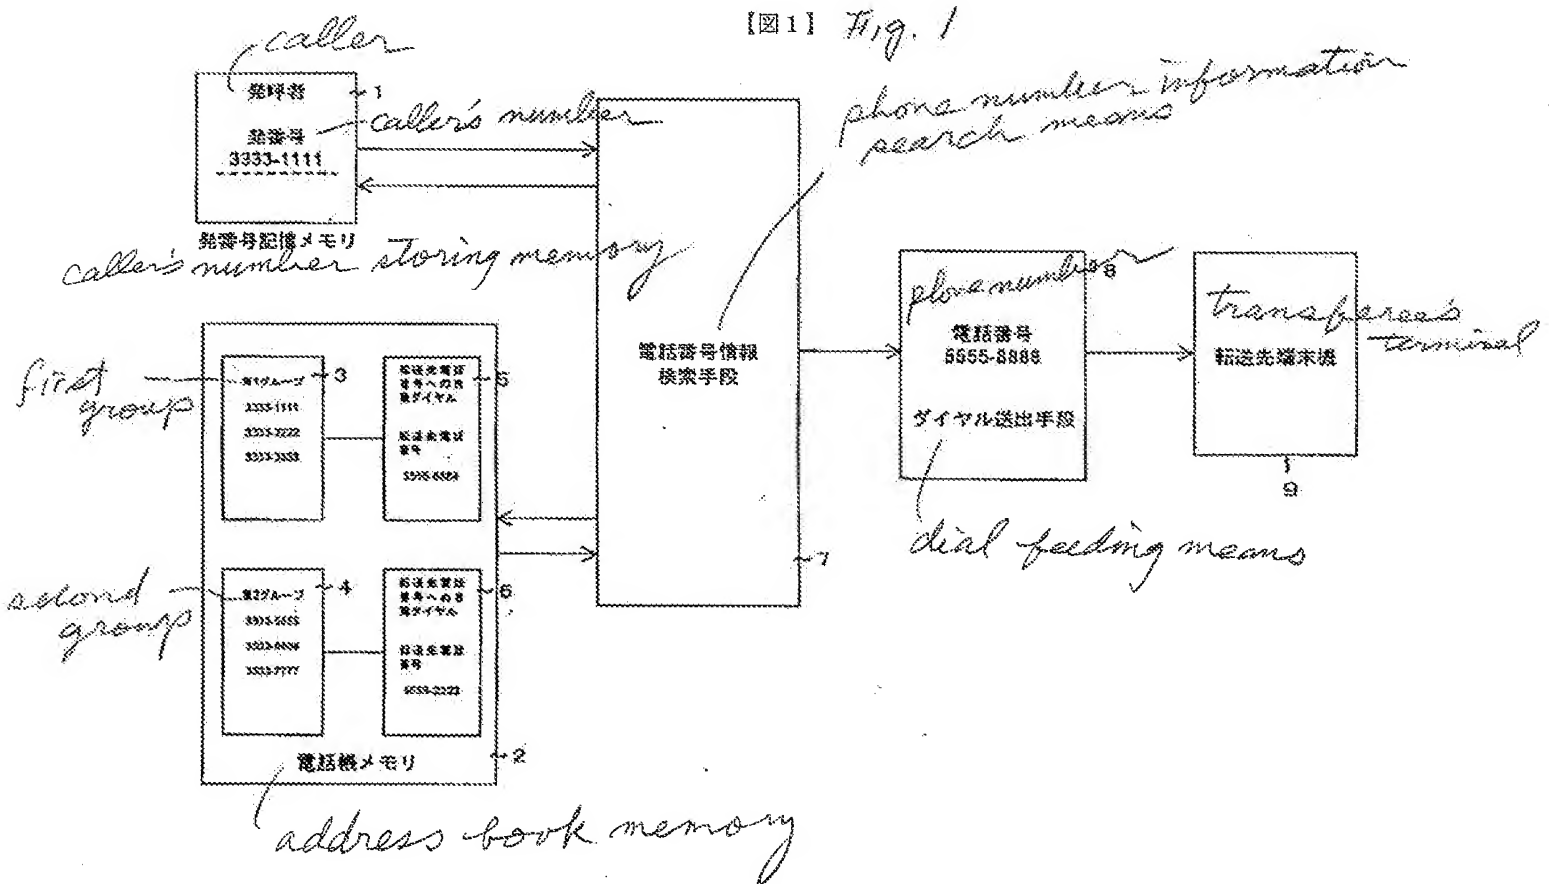 【図1】 Fig. 1
caller
発呼者
1
発番号
caller's number
3333-1111
発番号記憶メモリ
caller's number storing memory
phone number information
search means
電話番号情報
検索手段
7
first
group
第1グループ
3
3333-1111
3333-2222
3333-3333
転送先電話
番号への自
動ダイヤル
5
転送先電話
番号
second
group
第2グループ
4
3333-7777
転送先電話
番号への自
動ダイヤル
6
転送先電話
番号
電話帳メモリ
2
address book memory
phone number
8
電話番号
5555-8888
ダイヤル送出手段
dial feeding means
transferee's
terminal
転送先端末機
9